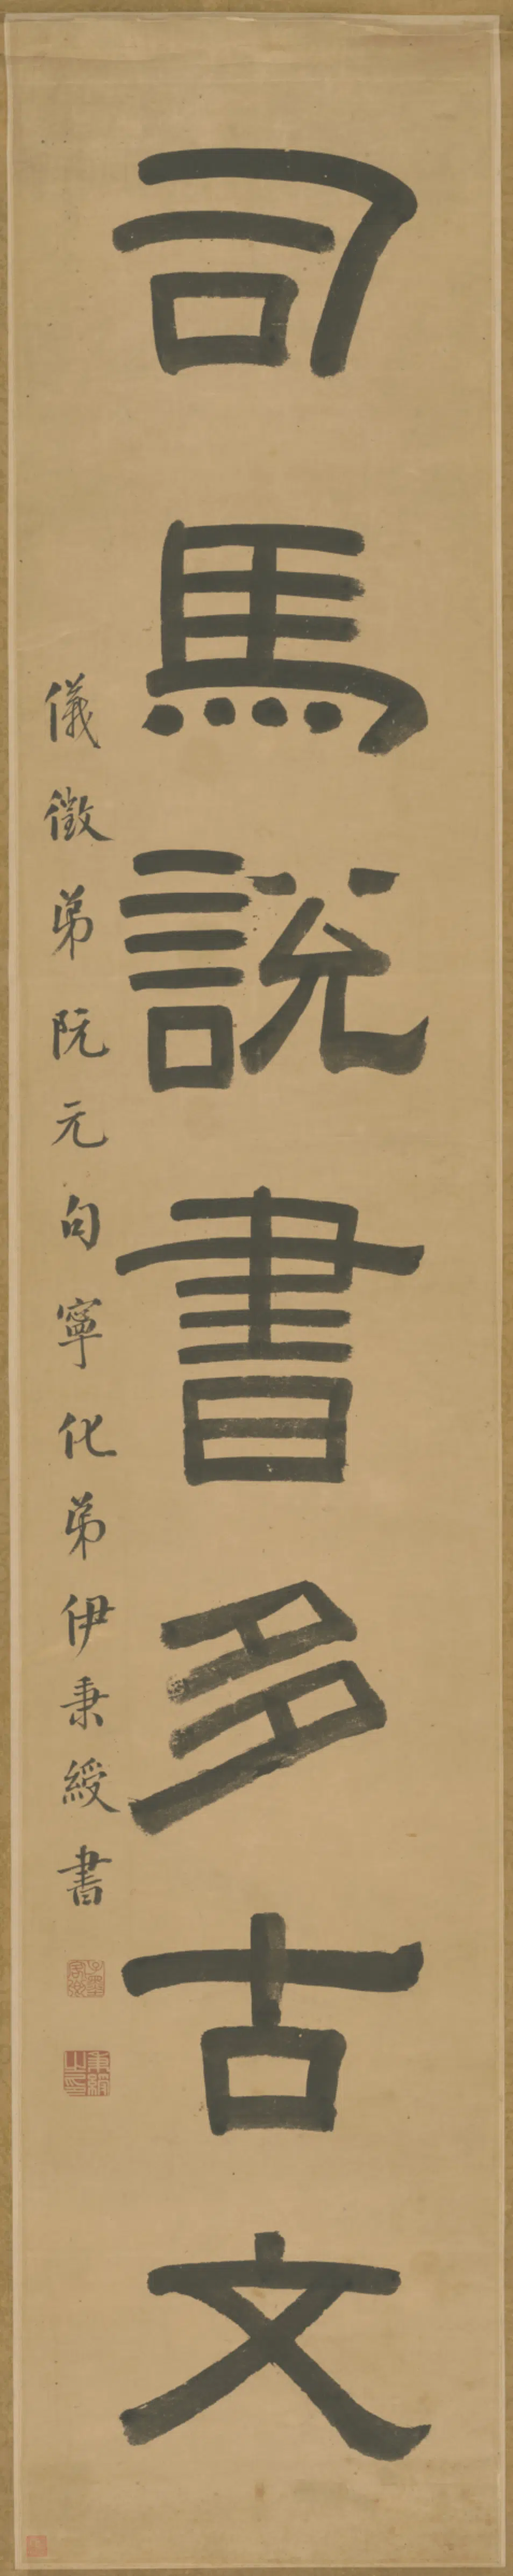 司馬說書多古文
儀徵弟阮元句寧化弟伊秉綬書
秉綬之印